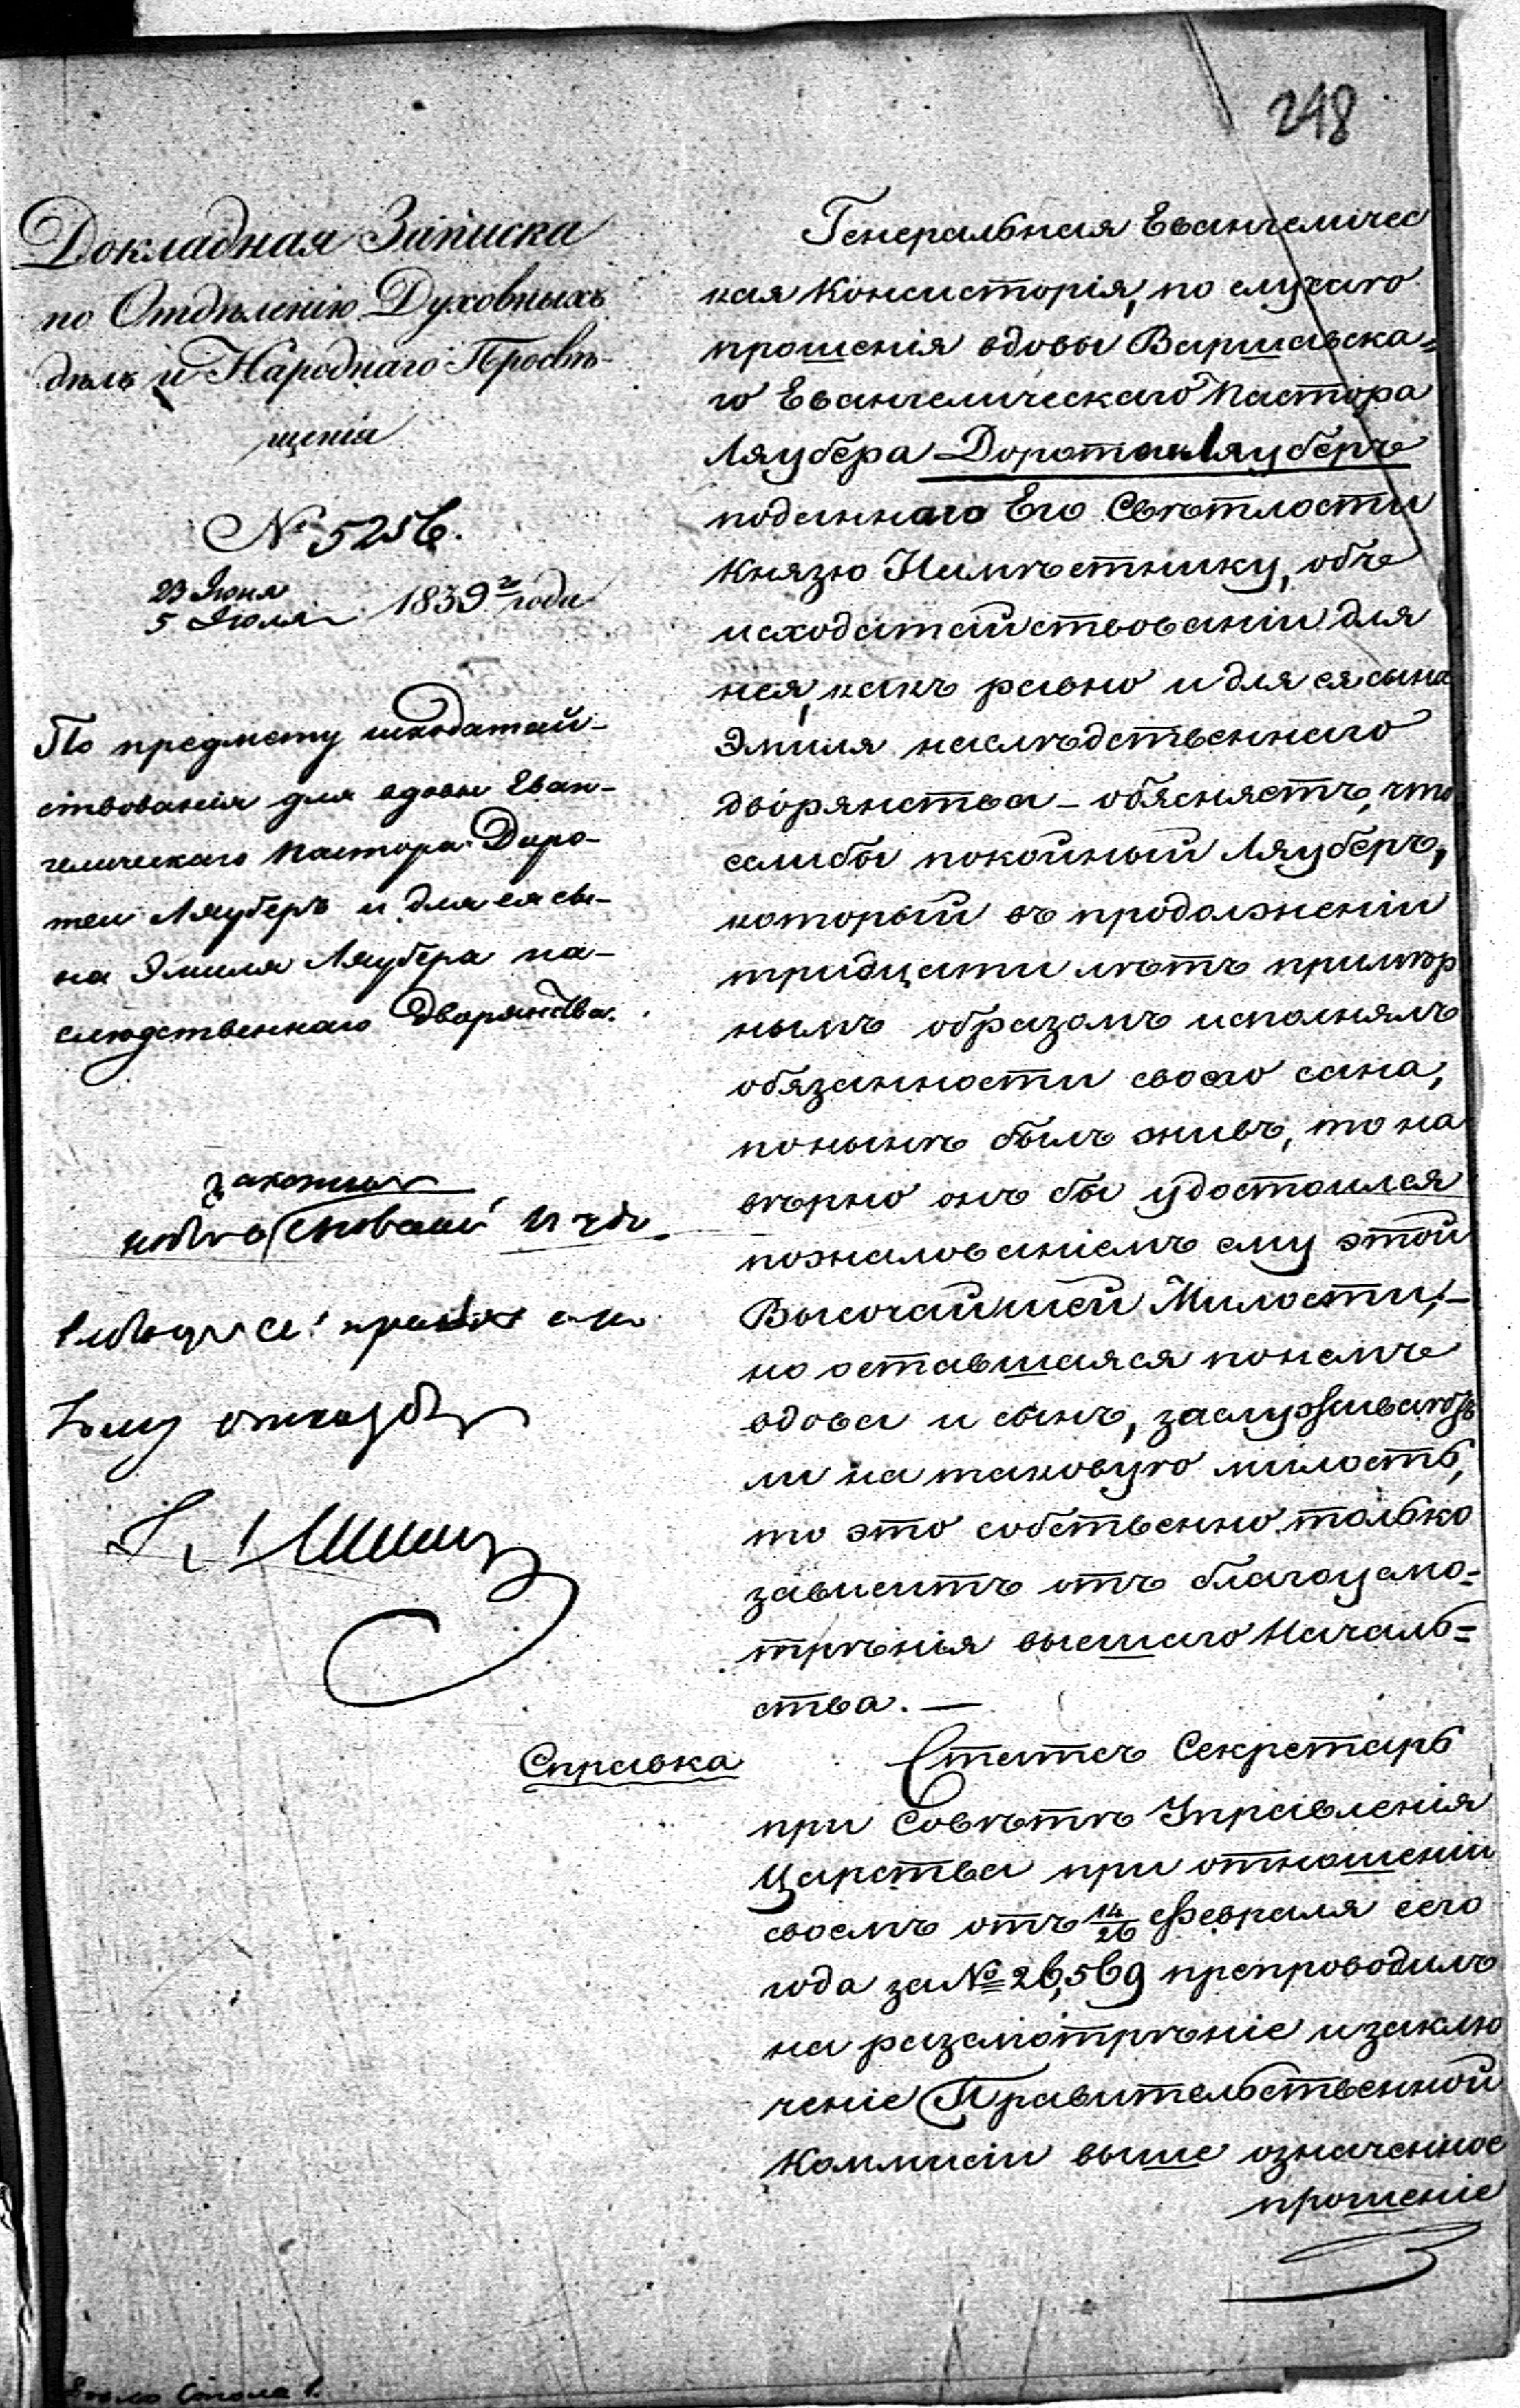 248
Докладная Записка
по Отдѣленію Духовныхъ
дѣлъ и Народнаго Просвѣ-
щенія
№ 5256.
23 Іюня
5 Іюля 1839го года
По предмету исходатай-
ствованія для вдовы Еван-
гелическаго Пастора Доро-
теи Ляуберъ и для ея сы-
на Эмиля Ляубера на-
слѣдственнаго Дворянства.
законнаго
основанія
отказать
Генеральная Евангеличес
кая Консисторія, по случаю
прошенія вдовы Варшавска=
го Евангелическаго Пастора
Ляубера Доротеи Ляуберъ
поданнаго Его Свѣтлости
Князю Намѣстнику, объ
исходатайствованіи для
нея, какъ равно и для ея сына
Эмиля наслѣдственнаго
дворянства – объясняетъ, что
еслибы покойный Ляуберъ,
который въ продолженіи
тридцати лѣтъ примѣр
нымъ образомъ исполнялъ
обязанности своего сана,
понынѣ былъ живъ, то на
вѣрно онъ бы удостоился
пожалованіемъ ему этой
Высочайшей Милости, –
но оставшаяся по немъ
вдова и сынъ, заслуживаютъ
ли на таковую милость,
то это собственно только
зависитъ отъ благоусмо=
трѣнія высшаго Началь=
ства. —
Справка
Статсъ Секретарь
при Совѣтѣ Управленія
Царства при отношеніи
своемъ отъ 14/26 Февраля сего
года за № 26,569 препроводилъ
на разсмотрѣніе и заклю
ченіе Правительственной
Коммисіи выше означенное
прошеніе